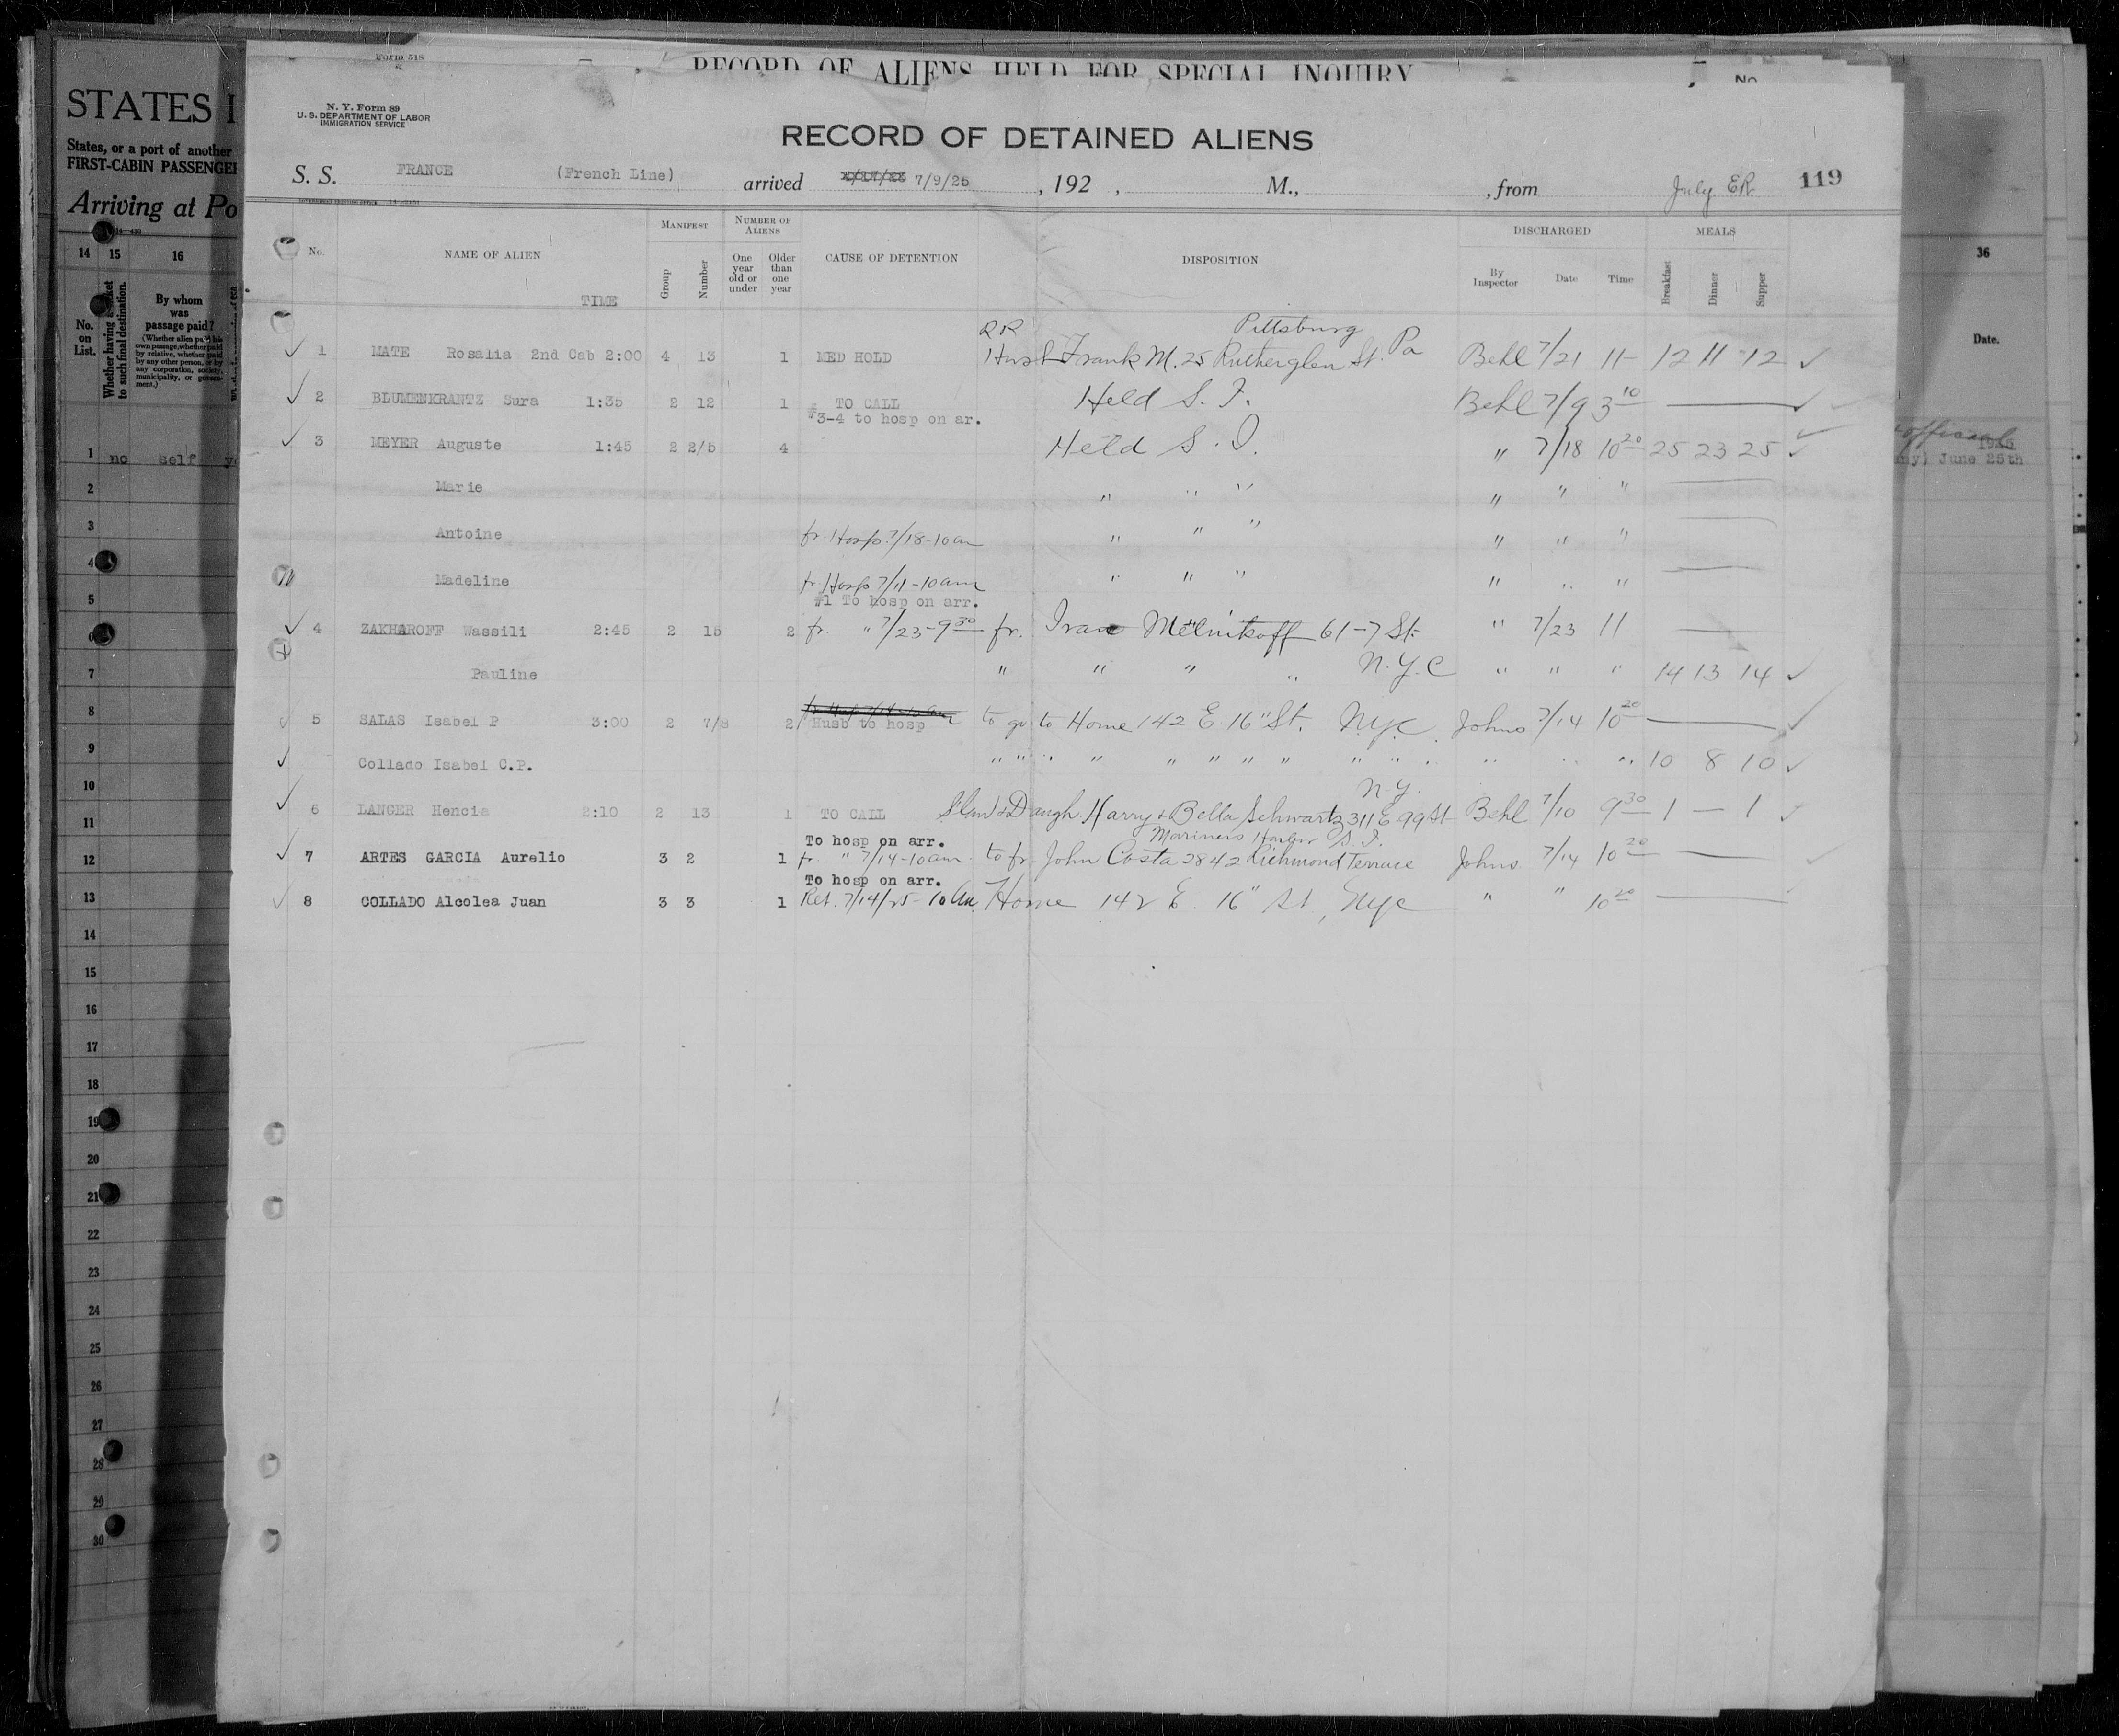 Form 518
RECORD OF ALIENS HELD FOR SPECIAL INQUIRY
No
N. Y. Form 89
U. S. DEPARTMENT OF LABOR
IMMIGRATION SERVICE
RECORD OF DETAINED ALIENS
S. S. FRANCE (French Line) arrived 7/9/25, 192 , M., , from July ER 119
No. NAME OF ALIEN TIME MANIFEST Group Number NUMBER OF ALIENS One year old or under Older than one year CAUSE OF DETENTION DISPOSITION DISCHARGED By Inspector Date Time MEALS Breakfast Dinner Supper
RR Pittsburg
1 MATE Rosalia 2nd Cab 2:00 4 13 1 MED HOLD Husb Frank M. 25 Rutherglen St. Pa Behl 7/21 11- 12 11 12
2 BLUMENKRANTZ Sura 1:35 2 12 1 TO CALL Held S. I. Behl 7/9 3 10
#3-4 to hosp on ar.
3 MEYER Auguste 1:45 2 2/5 4 Held S. I. " 7/18 10 20 25 23 25
Marie " " " " " "
Antoine fr. Hosp. 7/18-10am " " " " " "
Madeline fr. Hosp 7/11-10am " " " " " "
#1 To hosp on arr.
4 ZAKHAROFF Wassili 2:45 2 15 2 fr. " 7/23-9 30 fr. Ivan Melnikoff 61-7 St. " 7/23 11
Pauline " " " " N.Y.C " " " 14 13 14
5 SALAS Isabel P 3:00 2 7/8 2 Husb to hosp to go to Home 142 E 16" St. Nyc Johns 7/14 10 20
Collado Isabel C.P. " " " " " " " " " " " " " " 10 8 10
N.Y.
6 LANGER Hencia 2:10 2 13 1 TO CALL S'law & Daugh. Harry & Bella Schwartz 311 E 99 St Behl 7/10 9 30 1 — 1
To hosp on arr. Mariners Harbor S. I.
7 ARTES GARCIA Aurelio 3 2 1 fr. " 7/14-10am. to fr. John Costa 2842 Richmond Terrace Johns. 7/14 10 20
To hosp on arr.
8 COLLADO Alcolea Juan 3 3 1 Ret. 7/14/25- 10 am Home 142 E. 16" St, Nyc " " 10 20
STATES I
States, or a port of another
FIRST-CABIN PASSENGE
Arriving at Po
14 15 16
No. on List.
Whether having a ticket to such final destination.
By whom was passage paid?
(Whether alien paid his own passage, whether paid by relative, whether paid by any other person, or by any corporation, society, municipality, or government.)
1 no self
2
3
4
5
6
7
8
9
10
11
12
13
14
15
16
17
18
19
20
21
22
23
24
25
26
27
28
29
30
36
Date.
official
1925
ny) June 25th